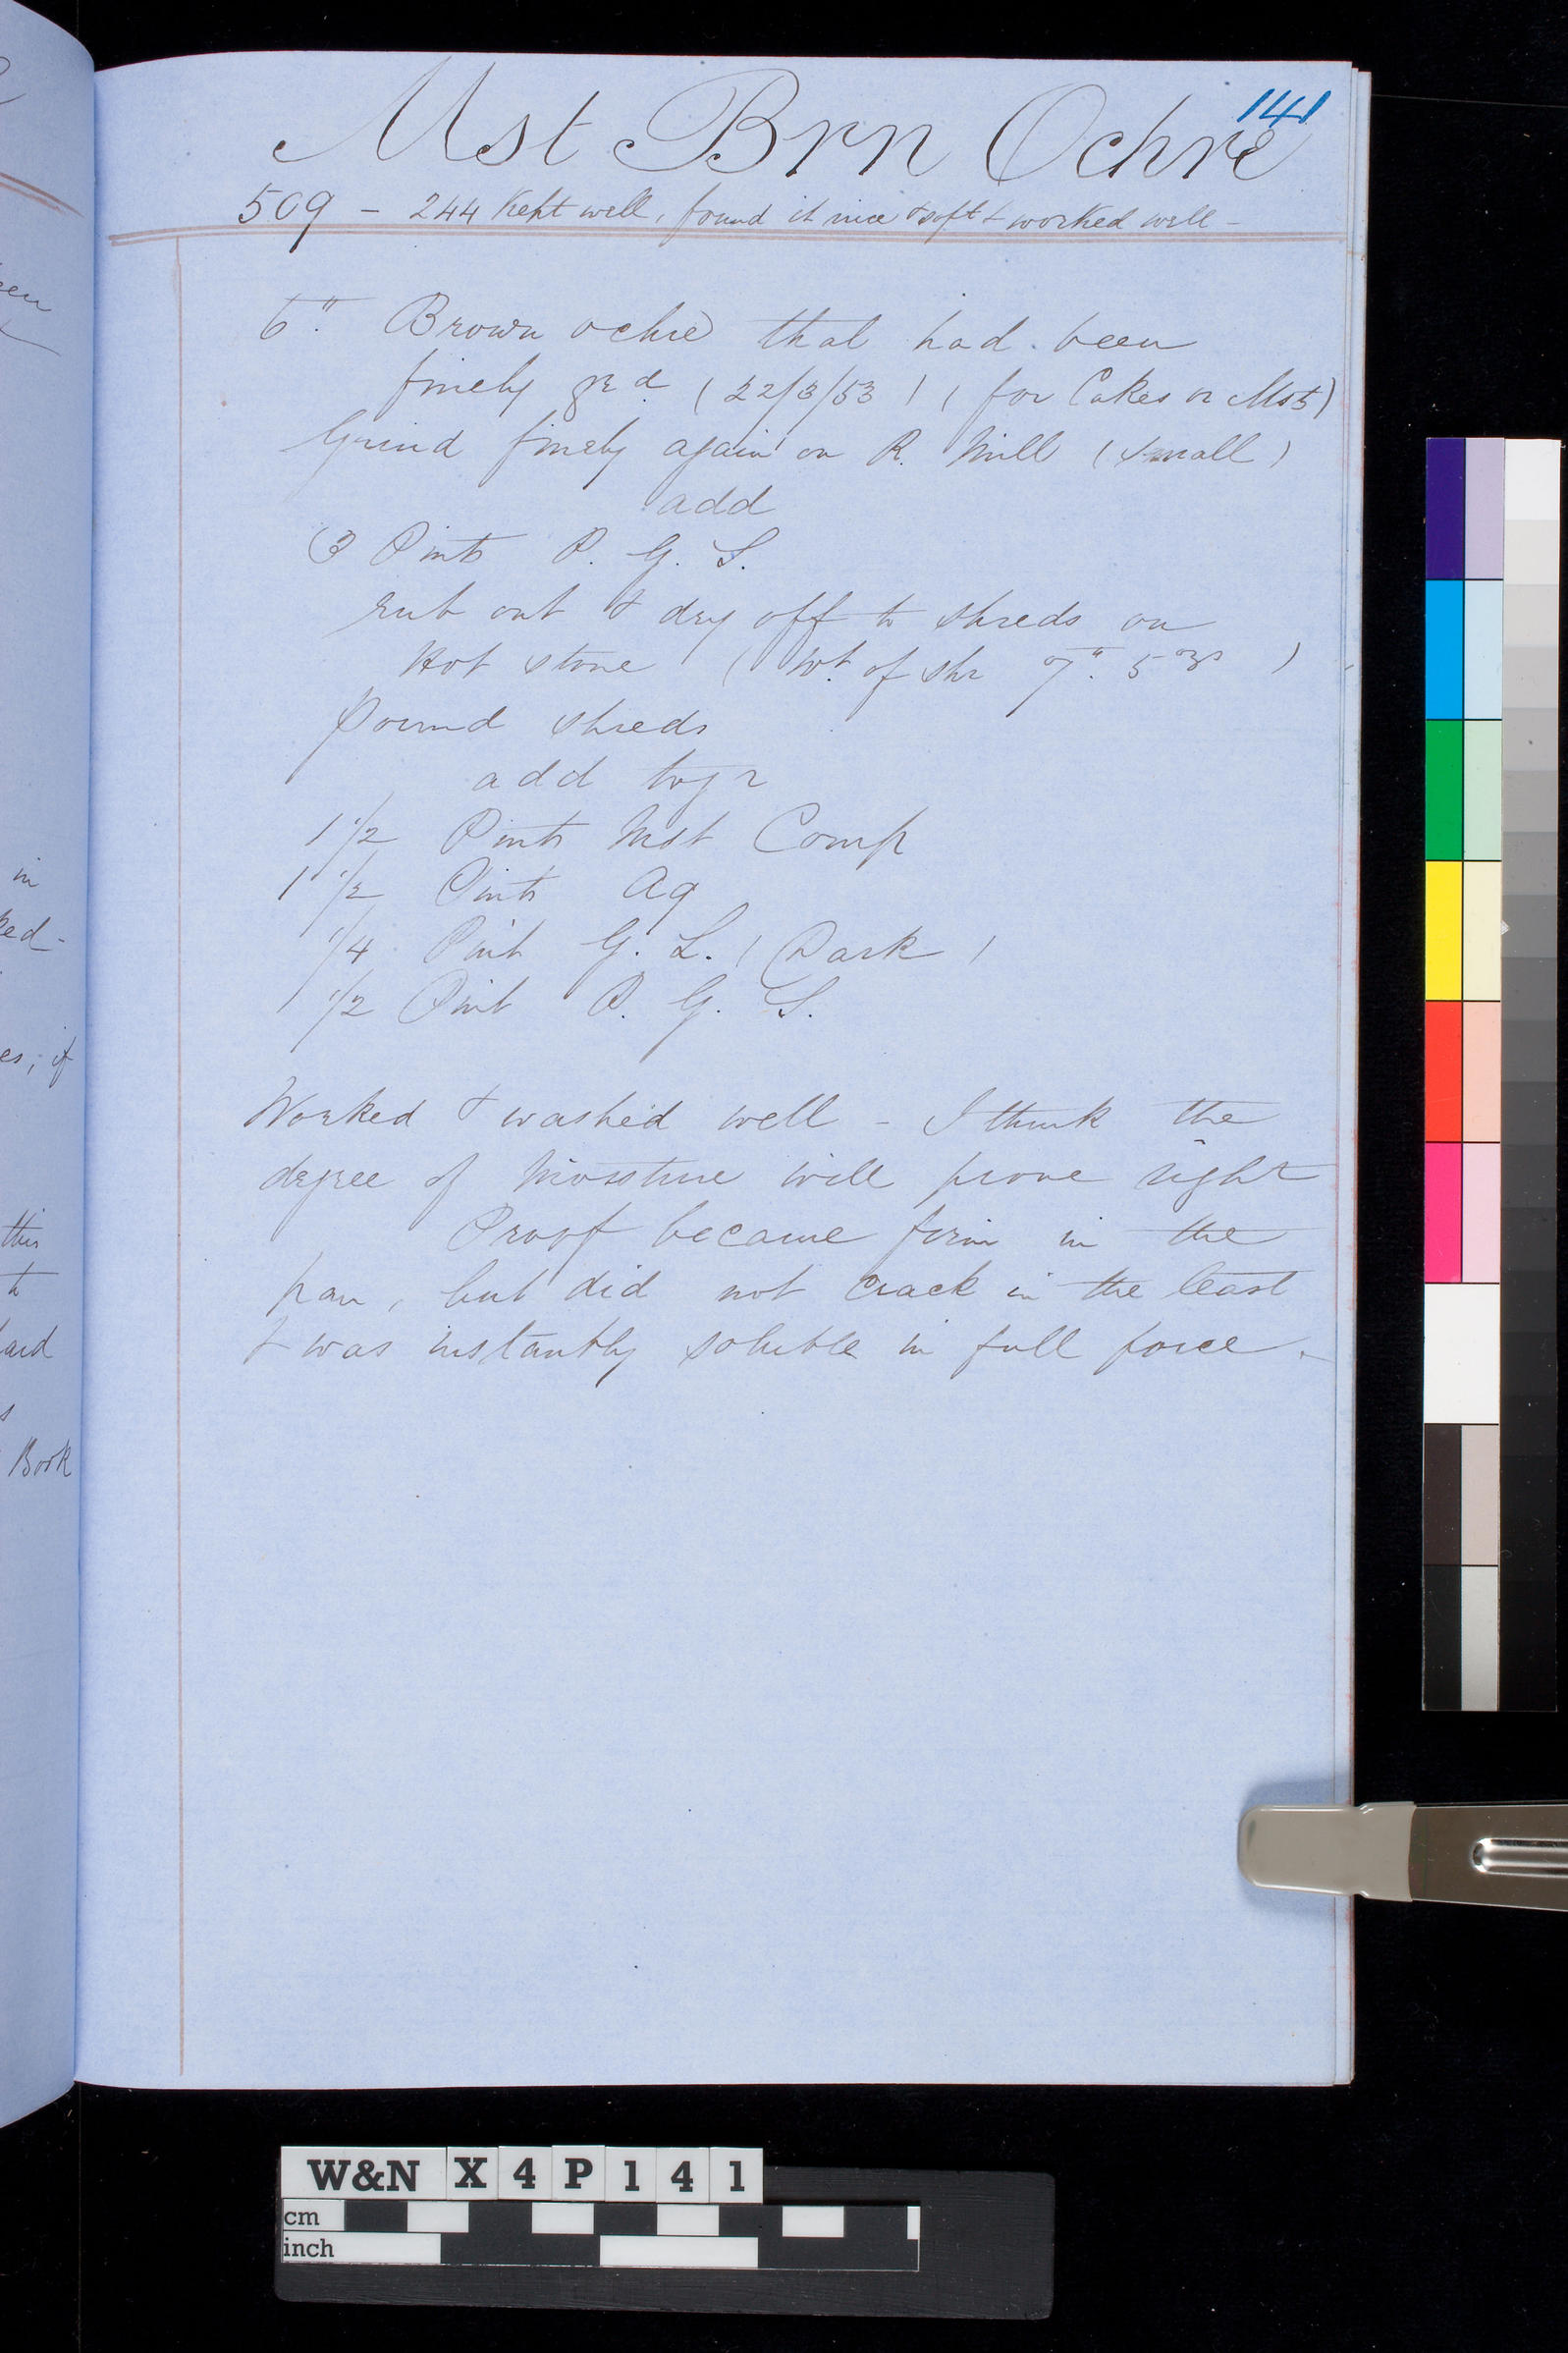 141
Mst Brn Ochre
509 - 244 Kept well, found it nice & soft & worked well -
6" Brown ochre that had been
finely grd (22/3/53) (for Cakes or Mst)
Grind finely again on R. Mill (small)
add
3 Pints P. G. S.
rub out & dry off to shreds on
Hot stone (Wt. of shr 7" 5 ozs)
Pound shreds
add togr
1 1/2 Pints Mst Comp
1 1/2 Pints Aq
1/4 Pint G. L. (Dark)
1/2 Pint P. G. S.
Worked & washed well - I think the
degree of Moisture will prove right
Proof became firm in the
pan, but did not crack in the least
& was instantly soluble in full force.
een
in
ked-
es, if
this
to
hard
s
Book
W&N X 4 P 1 4 1
cm
inch